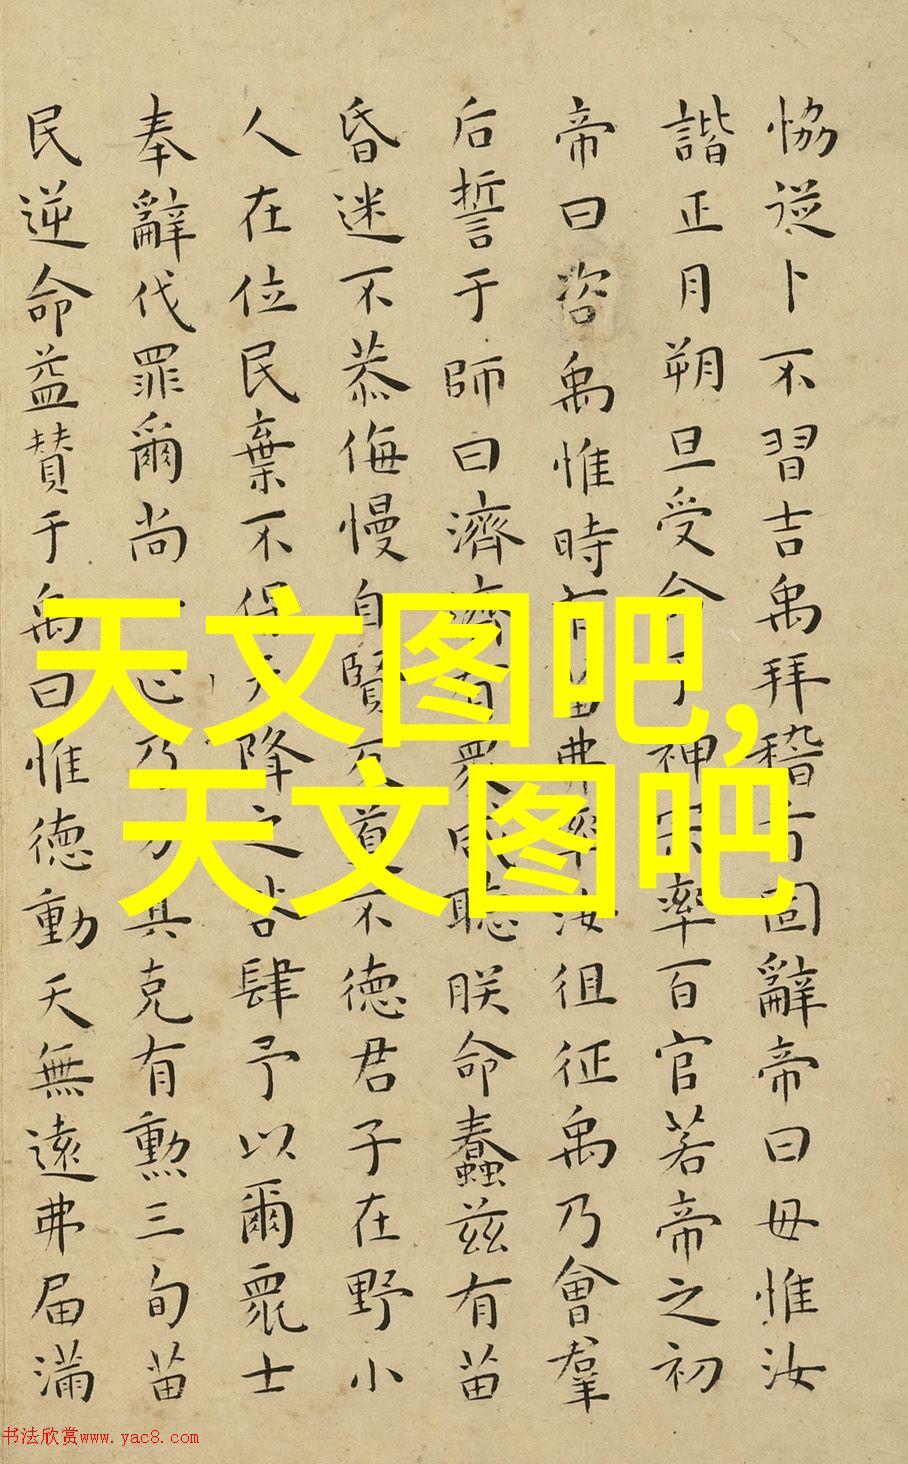 恊從卜不習吉禹拜稽首固辭帝曰毋惟汝
諧正月朔旦受命于神宗率百官若帝之初
帝曰咨禹惟時有苗弗率汝徂征禹乃會羣
后誓于師曰濟濟有眾咸聽朕命蠢茲有苗
昏迷不恭侮慢自賢反道不德君子在野小
人在位民棄不保天降之咎肆予以爾眾士
奉辭伐罪爾尚一心乃力其克有勳三旬苗
民逆命益贊于禹曰惟德動天無遠弗届滿
天文图吧,
天文图吧
书法欣赏www.yac8.com